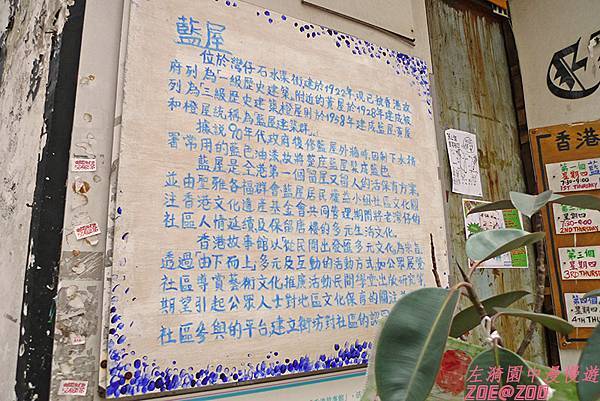 藍屋
位於灣仔石水渠街,建於1922年,現已被香港政
府列為「一級歷史建築」,附近的黃屋於1928年建成,被
列為「三級歷史建築」,橙屋則於1958年建成,藍屋,黃屋
和橙屋統稱為藍屋建築群。
據說90年代政府後修藍屋外牆時,因剩下水務
署常用的藍色油漆,故將整座藍屋髹為藍色
藍屋是全港第一個留屋又留人的活保育方案,
並由聖雅各福群會,藍屋居民權益小組,社區文化關
注,香港文化遺產基金會共同管理,期間將老灣仔的
社區人情延續及保留唐樓的多元生活文化。
香港故事館以從民間出發,匯多元文化為宗旨,
透過「由下而上」,多元及互動的活動方式,如公眾展覽
社區導賞,藝術文化推廣活動,民間學堂,出版,研究等
期望引起公眾人士對地區文化保育的關注
社區參與的平台,建立街坊對社區的認同
香港
第一個
星期四
7:30-9:00
1ST THURSDAY
第二個
星期四
7:30-9:00
2ND THURSDAY
第三個
星期四
3RD THURSDAY
第四個
星期四
4TH THU
左漪園中漫慢遊
ZOE@ZOO